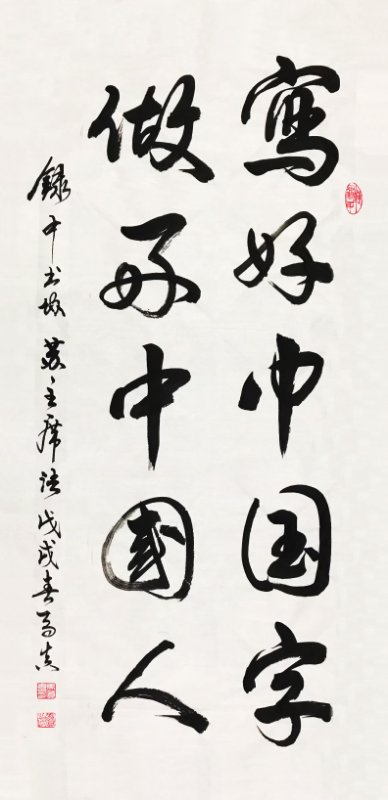 寫好中国字
做好中國人
錄中书协苏主席语戊戌春